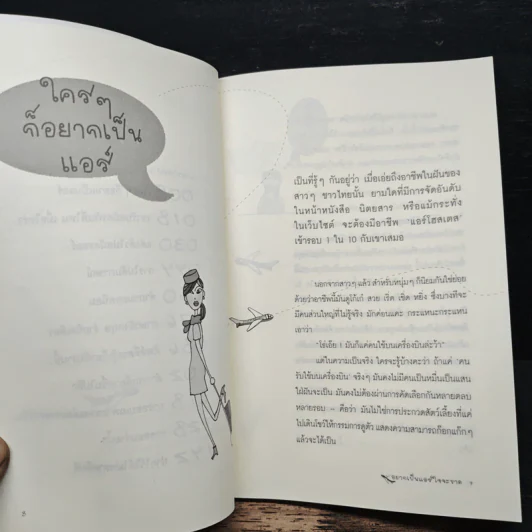 ใครๆ
ก็อยากเป็น
แอร์
เป็นที่รู้ๆ กันอยู่ว่า เมื่อเอ่ยถึงอาชีพในฝันของ
สาวๆ ชาวไทยนั้น ยามใดที่มีการจัดอันดับ
ในหน้าหนังสือ นิตยสาร หรือแม้กระทั่ง
ในเว็บไซต์ จะต้องมีอาชีพ "แอร์โฮสเตส"
เข้ารอบ 1 ใน 10 กับเขาเสมอ
นอกจากสาวๆ แล้ว สำหรับหนุ่มๆ ก็นิยมกันใช่ย่อย
ด้วยว่าอาชีพนี้มันดูโก้เก๋ สวย เริ่ด เชิด หยิ่ง ซึ่งบางทีจะ
มีคนส่วนใหญ่ที่ไม่รู้จริง มักค่อนแคะ กระแหนะกระแหน
เอาว่า
"โธ่เอ๊ย ! มันก็แค่คนใช้บนเครื่องบินล่ะว้า"
แต่ในความเป็นจริง ใครจะรู้บ้างคะว่า ถ้าแค่ "คน
รับใช้บนเครื่องบิน" จริงๆ มันคงไม่มีคนเป็นหมื่นเป็นแสน
ใฝ่ฝันจะเป็น มันคงไม่ต้องผ่านการคัดเลือกกันหลายตลบ
หลายรอบ – คือว่า มันไม่ใช่การประกวดสัตว์เลี้ยงที่แค่
ไปเดินโชว์ให้กรรมการดูตัว แสดงความสามารถก๊อกแก๊กๆ
แล้วจะได้เป็น
อยากเป็นแอร์ใจจะขาด 9
8